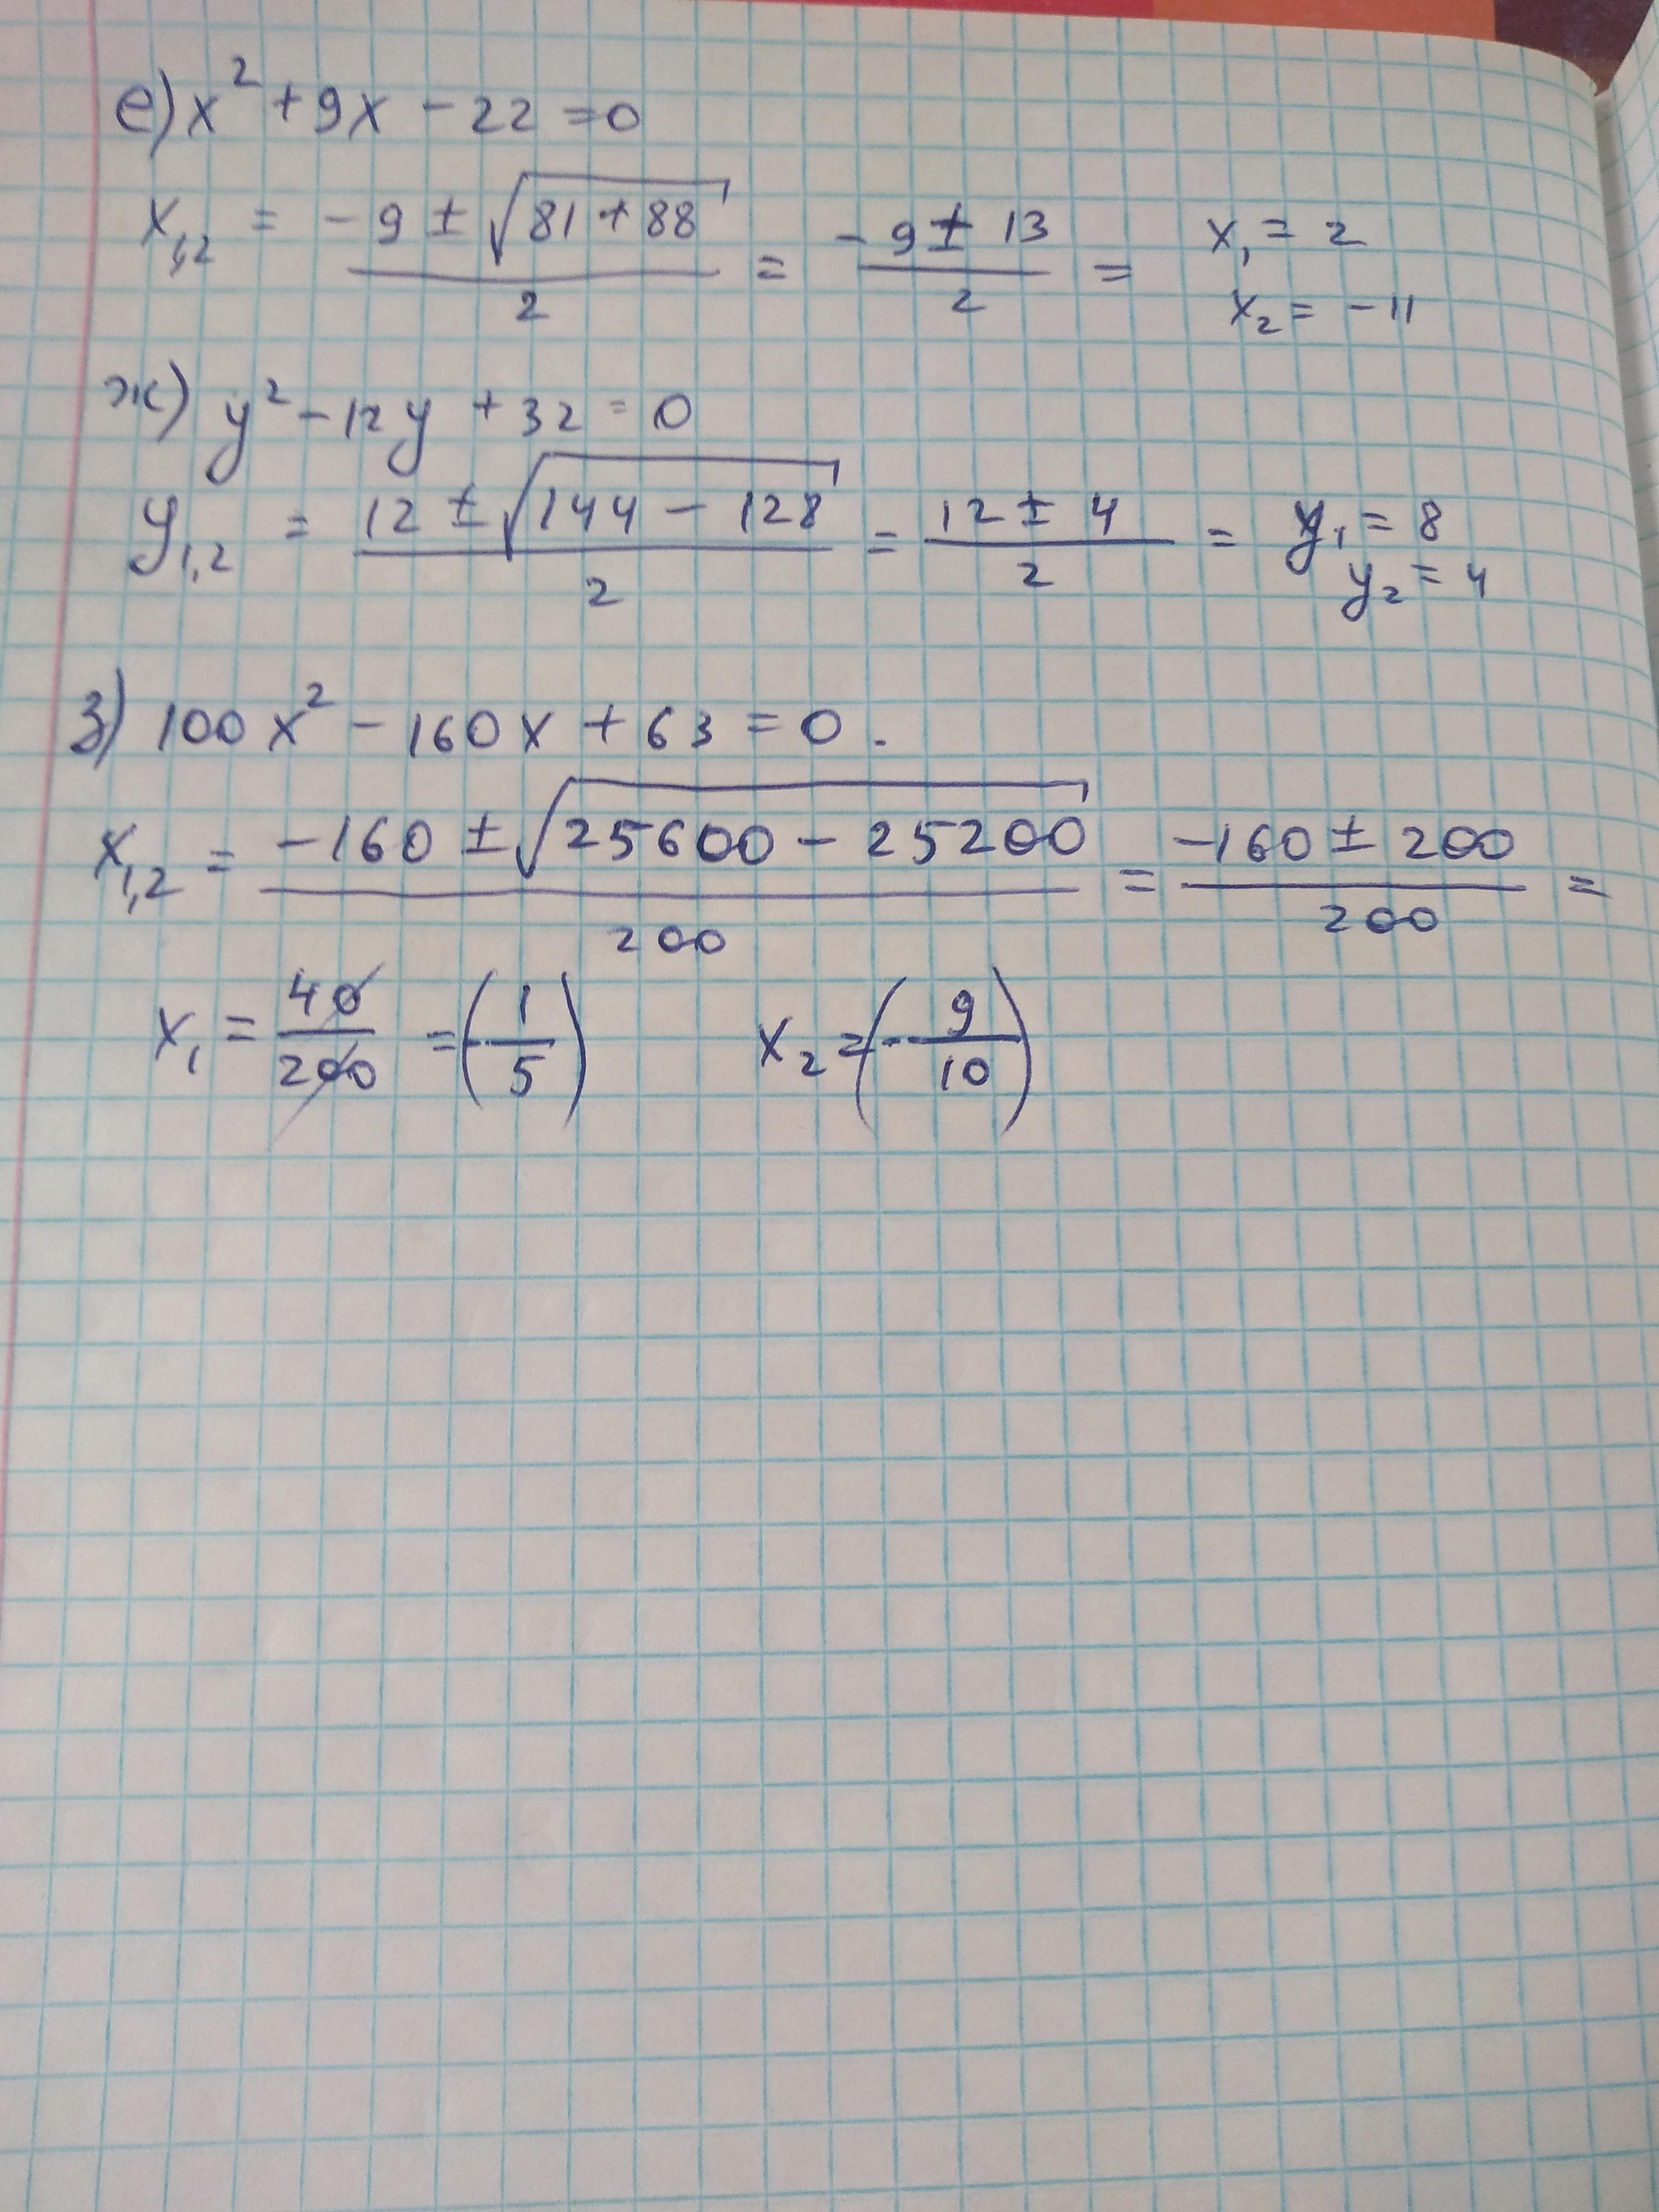 е) x² + 9x - 22 = 0
x₁,₂ = -9 ± √81 + 88 / 2 = -9 ± 13 / 2 = x₁ = 2
x₂ = -11
ж) y² - 12y + 32 = 0
y₁,₂ = 12 ± √144 - 128 / 2 = 12 ± 4 / 2 = y₁ = 8
y₂ = 4
з) 100x² - 160x + 63 = 0.
x₁,₂ = -160 ± √25600 - 25200 / 200 = -160 ± 200 / 200 =
x₁ = 40/200 = (-1/5) x₂ = (-9/10)